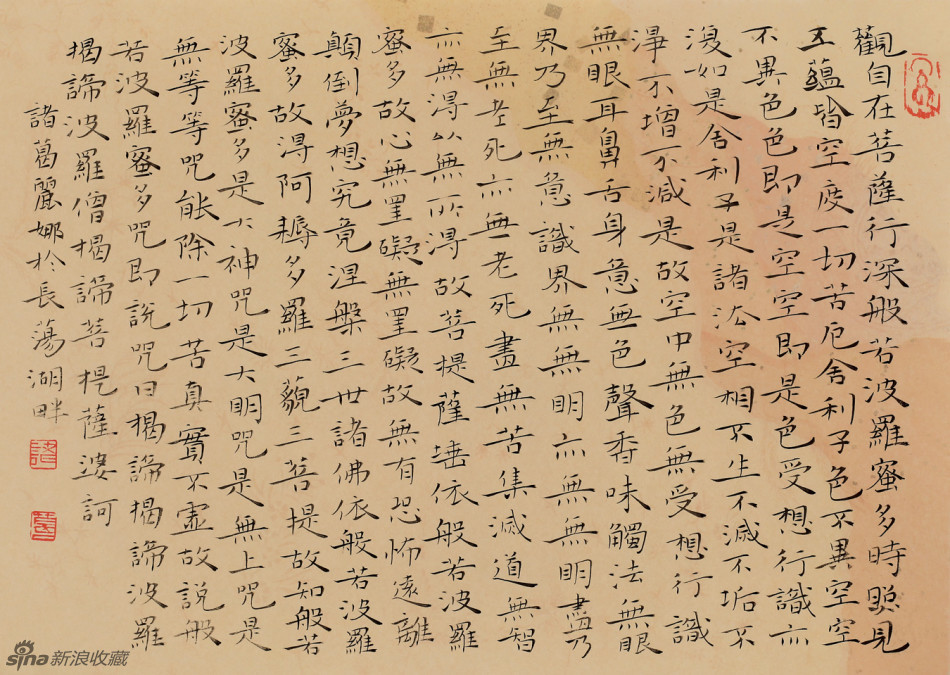 觀自在菩薩行深般若波羅蜜多時照見
五蘊皆空度一切苦厄舍利子色不異空空
不異色色即是空空即是色受想行識亦
復如是舍利子是諸法空相不生不滅不垢不
淨不增不減是故空中無色無受想行識
無眼耳鼻舌身意無色聲香味觸法無眼
界乃至無意識界無無明亦無無明盡乃
至無老死亦無老死盡無苦集滅道無智
亦無得以無所得故菩提薩埵依般若波羅
蜜多故心無罣礙無罣礙故無有恐怖遠離
顛倒夢想究竟涅槃三世諸佛依般若波羅
蜜多故得阿耨多羅三藐三菩提故知般若
波羅蜜多是大神咒是大明咒是無上咒是
無等等咒能除一切苦真實不虛故說般
若波羅蜜多咒即說咒曰揭諦揭諦波羅
揭諦波羅僧揭諦菩提薩婆訶
諸葛麗娜於長蕩湖畔
sina 新浪收藏